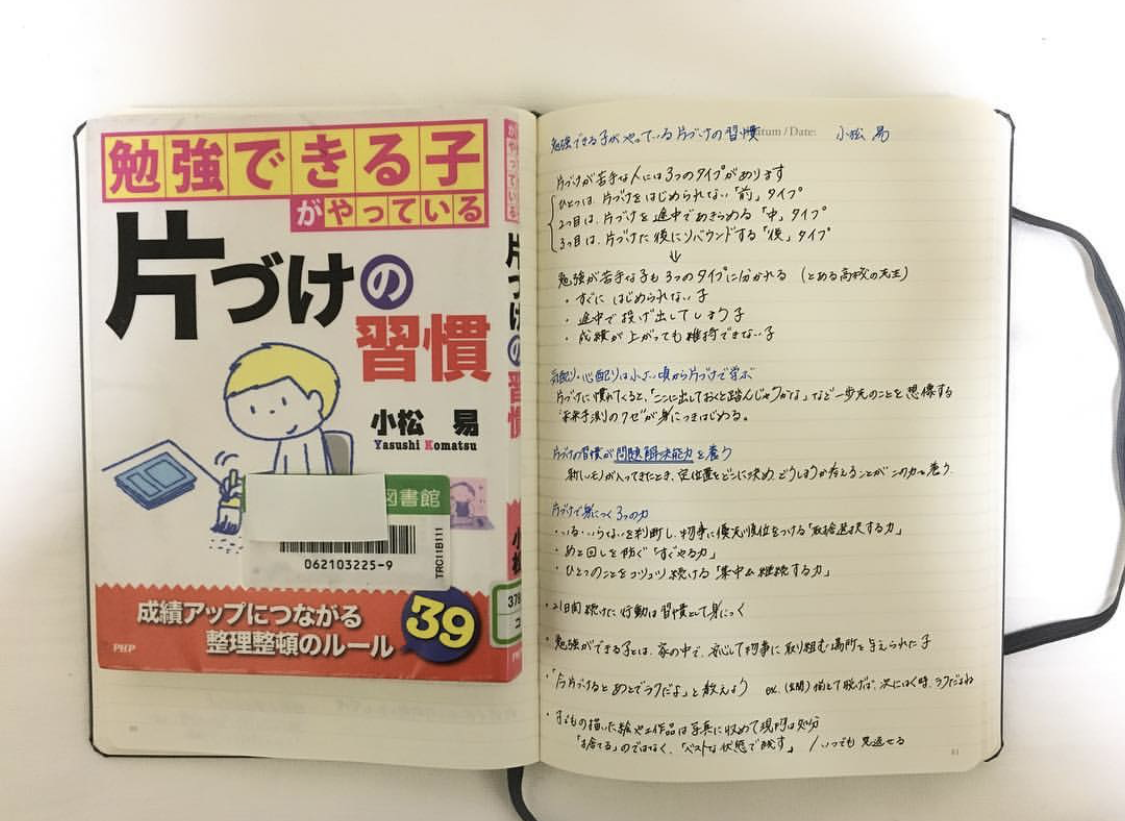 勉強できる子
がやっている
片づけの
習慣
小松 易
Yasushi Komatsu
図書館
062103225-9
TRC11B111
成績アップにつながる
整理整頓のルール
39
PHP
がやっている
片づけの習慣
小松
378
コ
PHP
勉強できる子がやっている片づけの習慣 tum / Date: 小松 易
片づけが苦手な人には3つのタイプがあります
ひとつは、片づけをはじめられない「前」タイプ
2つ目は、片づけを途中であきらめる「中」タイプ
3つ目は、片づけた後にリバウンドする「後」タイプ
↓
勉強が苦手な子も3つのタイプに分かれる (とある高校の先生)
・すぐに はじめられない子
・途中で投げ出してしまう子
・成績が上がっても維持できない子
気配り・心配りは小さい頃から片づけで学ぶ
片づけに慣れてくると、「ここに出しておくと踏んじゃうかな」など一歩先のことを想像する
"未来予測のクセ"が身につきはじめる。
片づけの習慣が問題解決能力を養う
新しいモノが入ってきたとき、定位置をどこに決め、どうしまうか考えることがこの力を養う
片づけで身につく3つの力
・いる・いらないを判断し、物事に優先順位をつける「取捨選択する力」
・あと回しを防ぐ「すぐやる力」
・ひとつのことをコツコツ続ける「集中&継続する力」
・21日間続けた行動は習慣として身につく
・勉強ができる子とは、家の中で、安心して物事に取り組む場所を与えられた子
・「今片づけるとあとでラクだよ」と教えよう ex. (玄関) 揃えて脱げば、次にはく時、ラクだよね
・子どもの描いた絵や工作品は写真に収めて現物は処分
「捨てる」のではなく、「ベストな状態で残す」 / いつでも見返せる
80
81